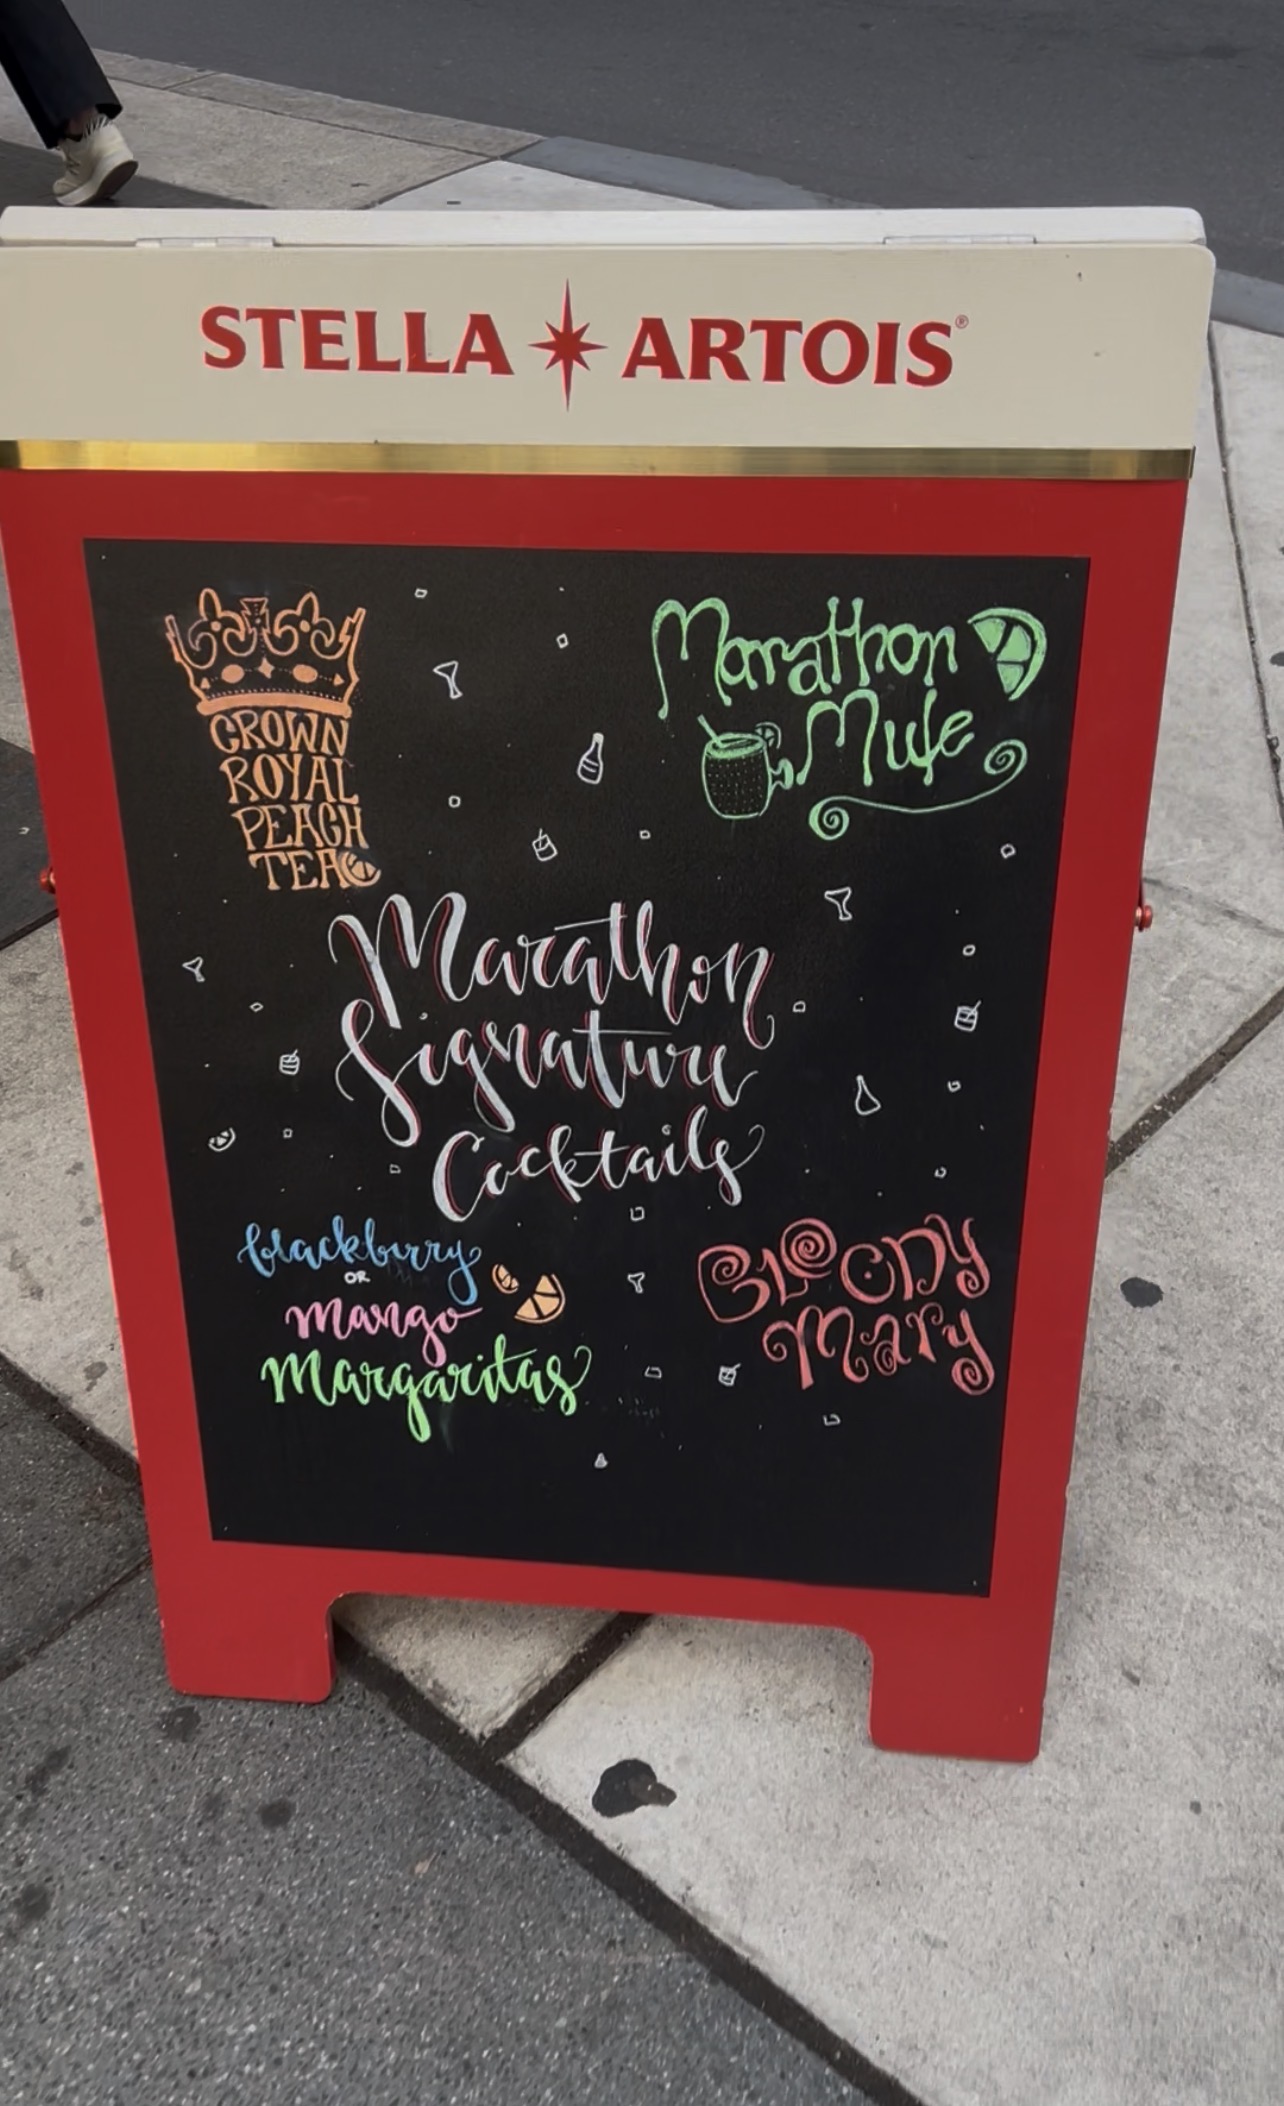 STELLA ARTOIS®
CROWN
ROYAL
PEACH
TEA
Marathon
Mule
Marathon
Signature
Cocktails
blackberry
OR
mango
Margaritas
BLOODY
Mary